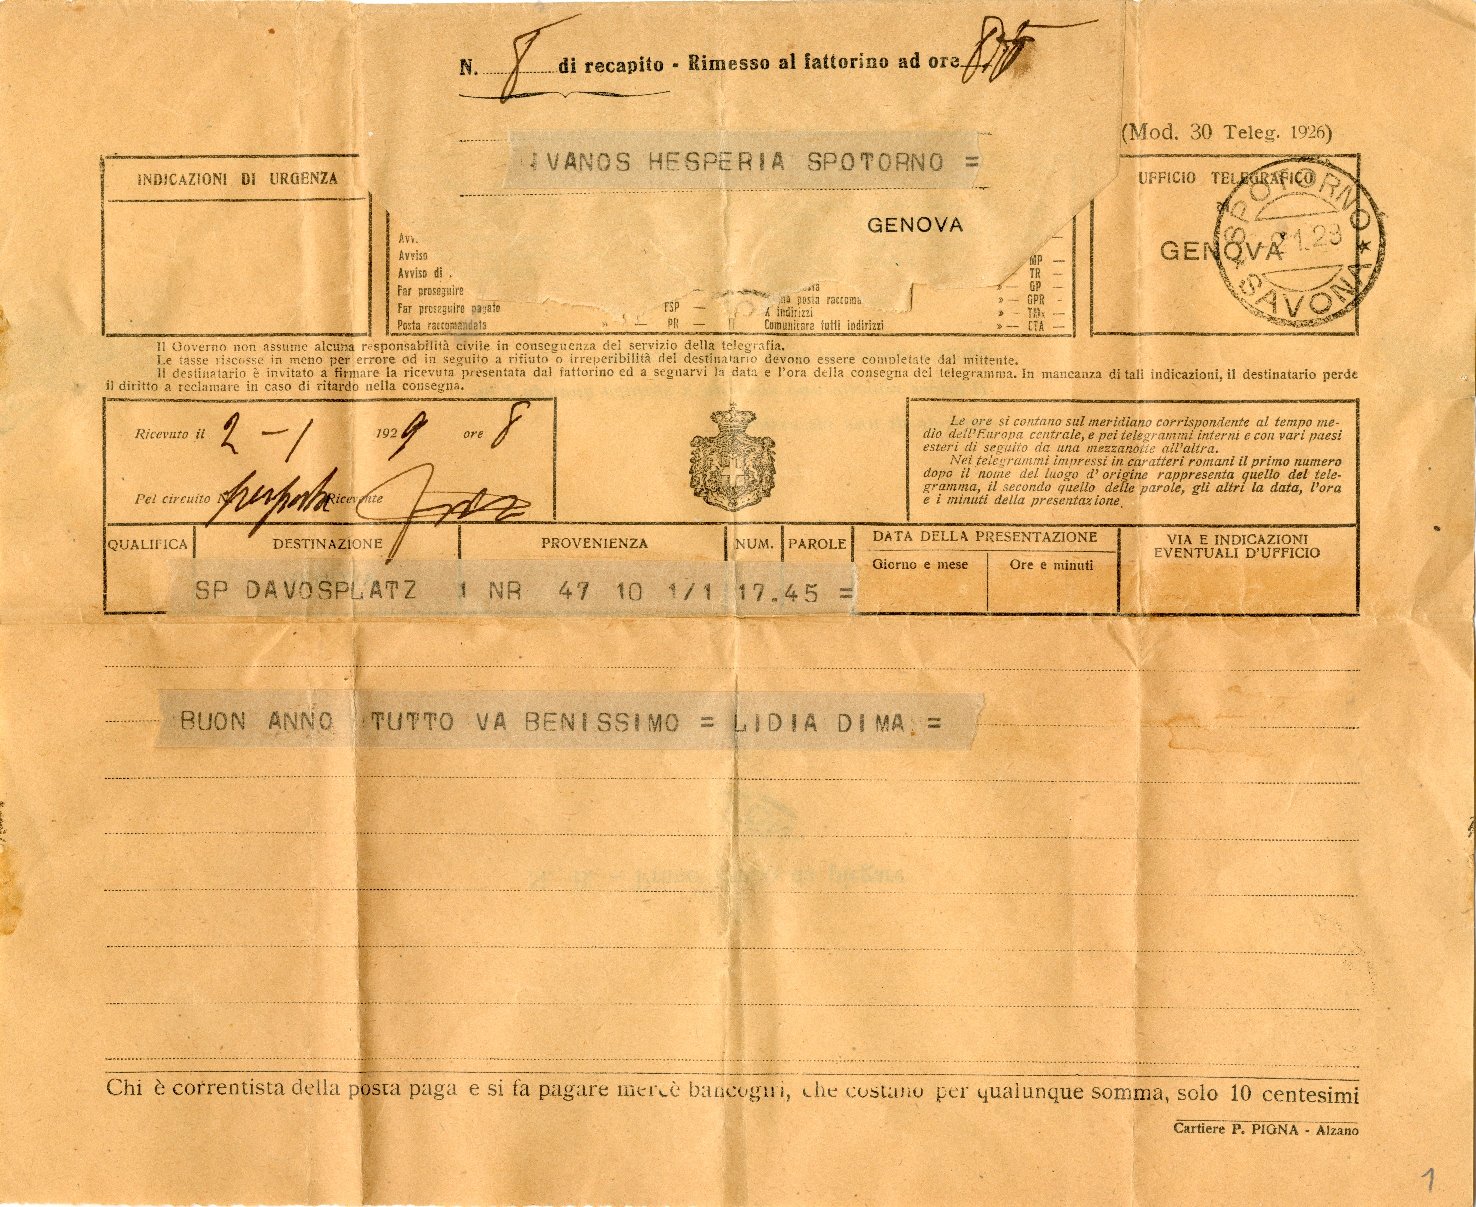 N. 8 di recapito - Rimesso al fattorino ad ore
(Mod. 30 Teleg. 1926)
IVANOS HESPERIA SPOTORNO =
GENOVA
INDICAZIONI DI URGENZA
Avv.
Avviso
Avviso di
Far proseguire
Far proseguire pagato FSP —
Posta raccomandata » — PR —
posta raccoma
indirizzi
Comunicare tutti indirizzi
MP —
TR —
» — GP —
» — GPR —
» — TMx —
» — CTA —
UFFICIO TELEGRAFICO
GENOVA
SPOTORNO
2.1.29
★ SAVONA ★
Il Governo non assume alcuna responsabilità civile in conseguenza del servizio della telegrafia.
Le tasse riscosse in meno per errore od in seguito a rifiuto o irreperibilità del destinatario devono essere completate dal mittente.
Il destinatario è invitato a firmare la ricevuta presentata dal fattorino ed a segnarvi la data e l'ora della consegna del telegramma. In mancanza di tali indicazioni, il destinatario perde
il diritto a reclamare in caso di ritardo nella consegna.
Ricevuto il 2-1 1929 ore 8
Pel circuito N. Ricevente
Le ore si contano sul meridiano corrispondente al tempo me-
dio dell'Europa centrale, e pei telegrammi interni e con vari paesi
esteri di seguito da una mezzanotte all'altra.
Nei telegrammi impressi in caratteri romani il primo numero
dopo il nome del luogo d'origine rappresenta quello del tele-
gramma, il secondo quello delle parole, gli altri la data, l'ora
e i minuti della presentazione.
QUALIFICA DESTINAZIONE PROVENIENZA NUM. PAROLE DATA DELLA PRESENTAZIONE VIA E INDICAZIONI
EVENTUALI D'UFFICIO
Giorno e mese Ore e minuti
SP DAVOSPLATZ 1 NR 47 10 1/1 17.45 =
BUON ANNO TUTTO VA BENISSIMO = LIDIA DIMA =
Chi è correntista della posta paga e si fa pagare mercè bancogiri, che costano per qualunque somma, solo 10 centesimi
Cartiere P. PIGNA - Alzano
1